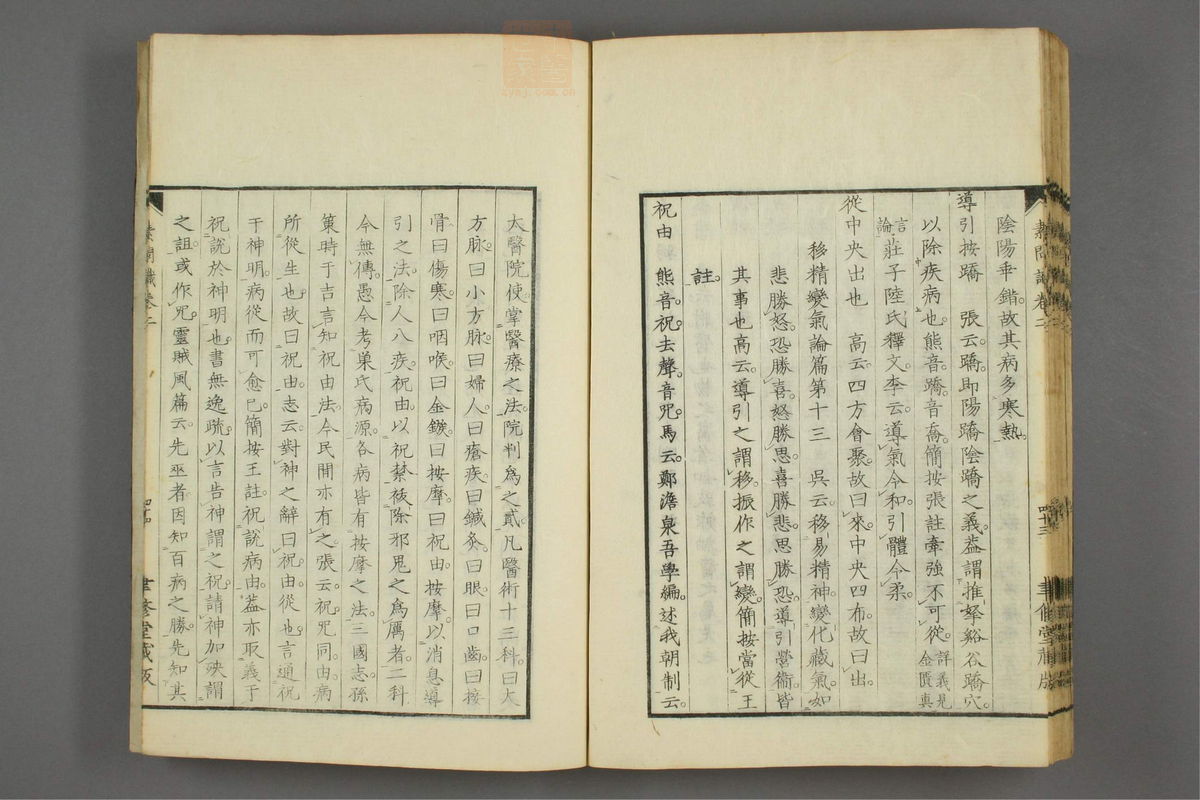 素問識卷二
四十三
聿修堂藏版
陰陽乖錯故其病多寒熱。
導引按蹻　張云蹻即陽蹻陰蹻之義蓋謂推拏谿谷蹻穴。
以除疾病也熊音。蹻音喬。簡按張註牽強不可從。詳義見金匱真
言論莊子陸氏釋文。李云。導氣令和引體令柔。
從中央出也　高云。四方會聚。故曰來。中央四布。故曰出。
移精變氣論篇第十三　吳云。移易精神。變化藏氣。如
悲勝怒。恐勝喜。怒勝思。喜勝悲。思勝恐。導引營衛。皆
其事也高云。導引之謂移。振作之謂變。簡按當從王
註。
祝由　熊音。祝去聲。音咒。馬云。鄭澹泉吾學編。述我朝制云。
太醫院使。掌醫療之法。院判為之貳。凡醫術十三科。曰大
方脉。曰小方脉。曰婦人。曰瘡疾。曰鍼灸。曰眼。曰口齒。曰接
骨。曰傷寒。曰咽喉。曰金鏃。曰按摩。曰祝由。按摩。以消息導
引之法。除人八疾。祝由。以祝禁祓除邪鬼之為厲者。二科
今無傳。愚今考巢氏病源。各病皆有按摩之法。三國志。孫
策時于吉。言知祝由法。今民間亦有之。張云。祝咒同。由病
所從生也。故曰祝由。志云。對神之辭曰祝。由。從也。言通祝
于神明。病從而可愈已。簡按王註。祝說病由。蓋亦取義于
祝說於神明也。書無逸疏。以言告神謂之祝。請神加殃謂
之詛。或作咒。靈賊風篇云。先巫者因知百病之勝。先知其
素問識卷二
聿修堂藏版